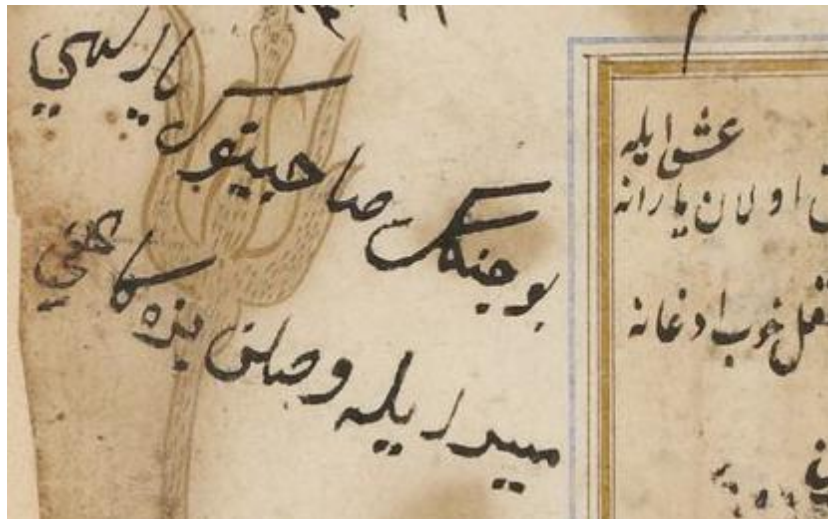 بو جنك صاحبينوك يا الهي
ميسر ايله وصلن بزه كاهي
عشق ايله
اولان يارانه
خوب ادغانه